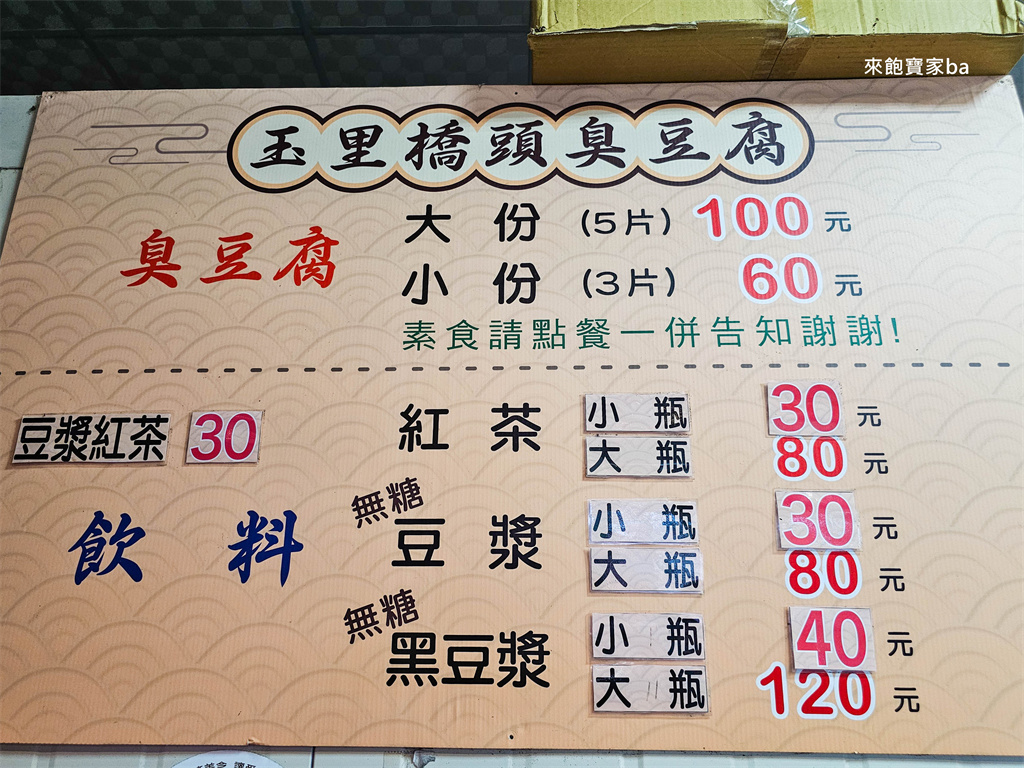 來飽寶家ba
玉里橋頭臭豆腐
臭豆腐
大份 (5片) 100元
小份 (3片) 60元
素食請點餐一併告知謝謝!
豆漿紅茶 30
飲料
紅茶 小瓶 30元
大瓶 80元
無糖
豆漿 小瓶 30元
大瓶 80元
無糖
黑豆漿 小瓶 40元
大瓶 120元